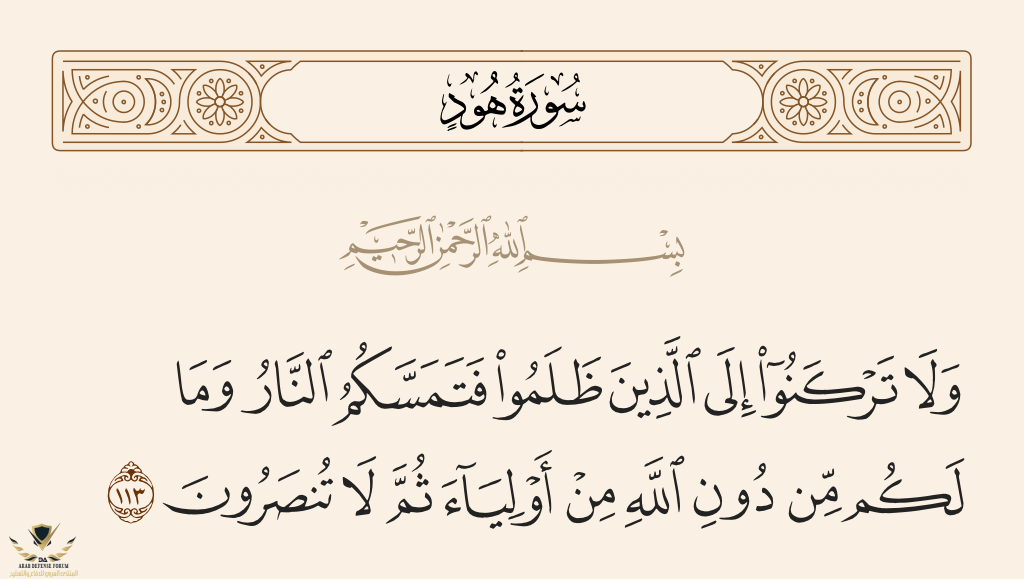 سُورَةُ هُودٍ
بِسْمِ ٱللَّهِ ٱلرَّحْمَٰنِ ٱلرَّحِيمِ
وَلَا تَرْكَنُوٓا۟ إِلَى ٱلَّذِينَ ظَلَمُوا۟ فَتَمَسَّكُمُ ٱلنَّارُ وَمَا
لَكُم مِّن دُونِ ٱللَّهِ مِنْ أَوْلِيَآءَ ثُمَّ لَا تُنصَرُونَ ١١٣
ARAB DEFENSE FORUM
المنتدى العربي للدفاع والتسليح